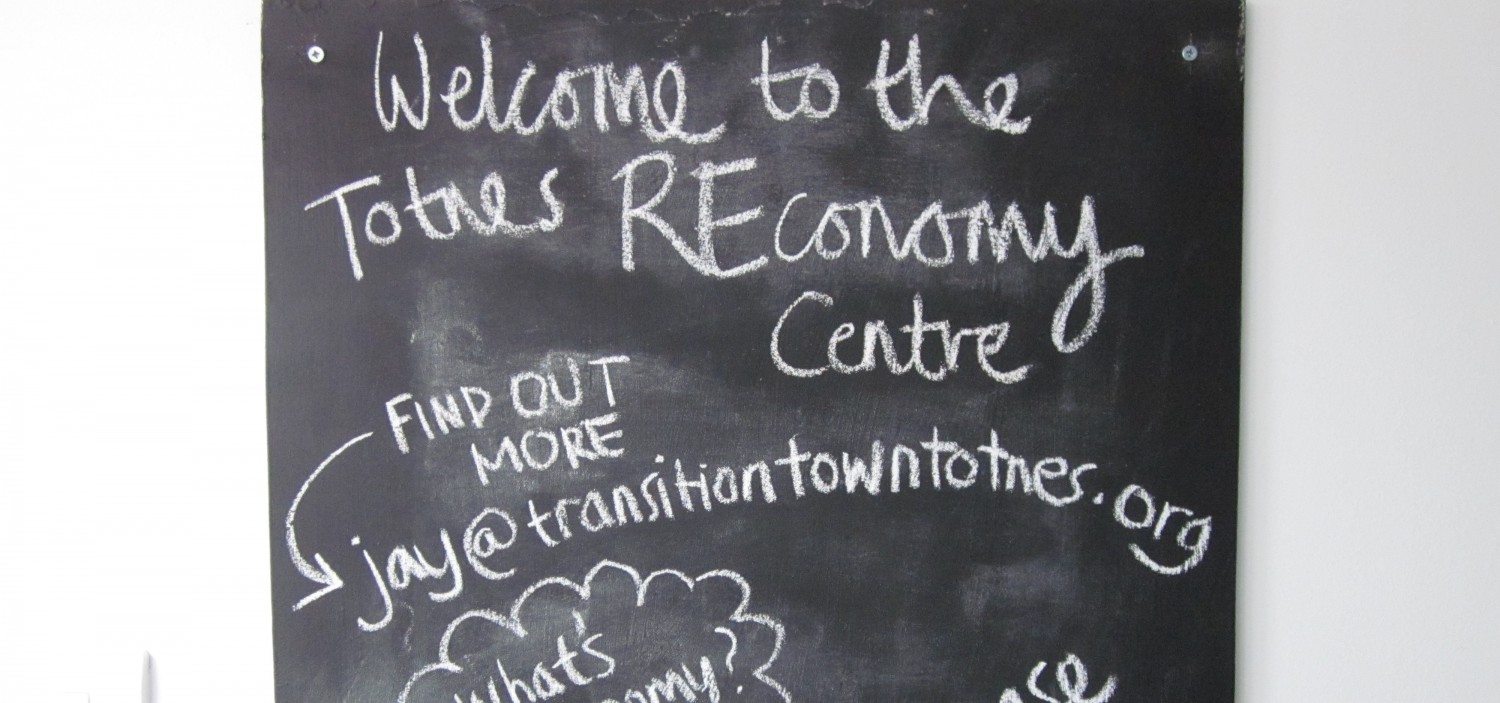 Welcome to the
Totnes REconomy
Centre
FIND OUT
MORE
jay@transitiontowntotnes.org
What's